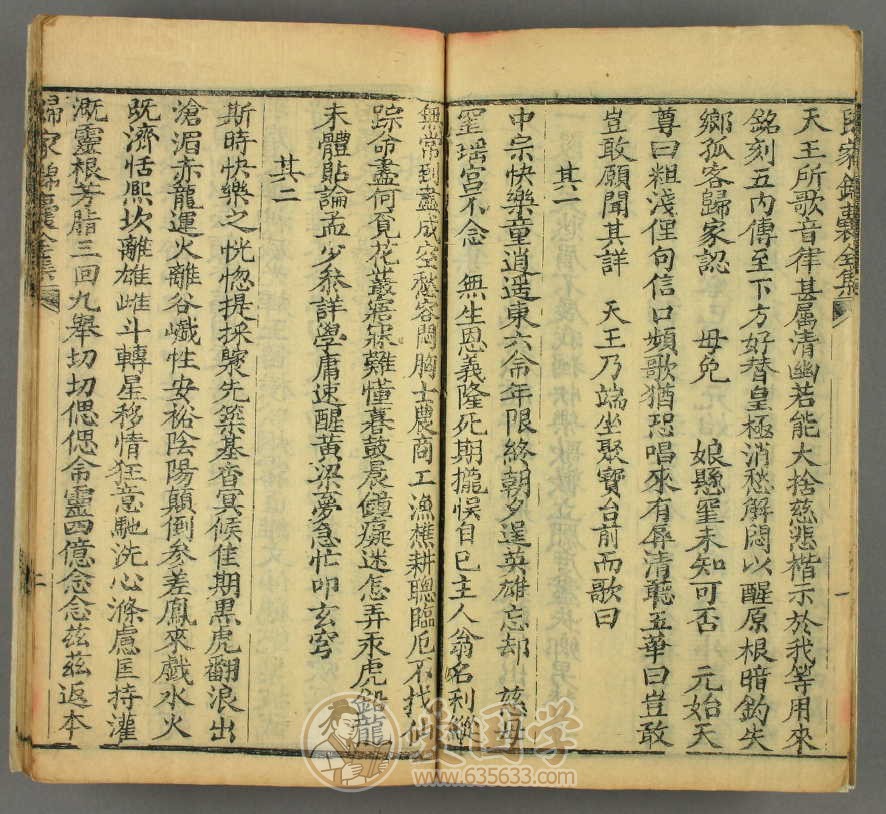 歸家錦囊全集
天王所歌音律甚屬清幽若能大捨慈悲楷示於我等用來
銘刻五內傳至下方好替皇極消愁解悶以醒原根暗鈎失
鄉孤客歸家認　母免　　娘懸罣未知可否　元始天
尊曰粗淺俚句信口頻歌猶恐唱來有辱清聽五華曰豈敢
豈敢願聞其詳　天王乃端坐聚寶台前而歌曰
其一
中宗快樂童逍遥東六侖年限終朝夕逞英雄忘却　慈母
罣瑶宮不念　無生恩義隆死期攏悞自已主人翁名利
無常到盡成空愁容悶胸士農商工漁樵耕聰臨厄不找仙
踪命盡何覓花叢寤寐難懂暮鼓晨鐘癡迷怎弄汞虎鉛龍
未體貼論孟少叅詳學庸速醒黄梁夢急忙叩玄穹
其二
斯時快樂之恍惚提採褧先築基杳冥候佳期黒虎翻浪出
滄湄赤龍運火離谷巇性安裕陰陽顛倒參差鳳來戲水火
既濟恬熙坎離雄雌斗轉星移情狂意馳洗心滌慮匡持灌
溉靈根芳脂三回九舉切切偲偲侖靈四億念念茲茲返本
歸家錦囊全集
一
二
袁国学
www.635633.com